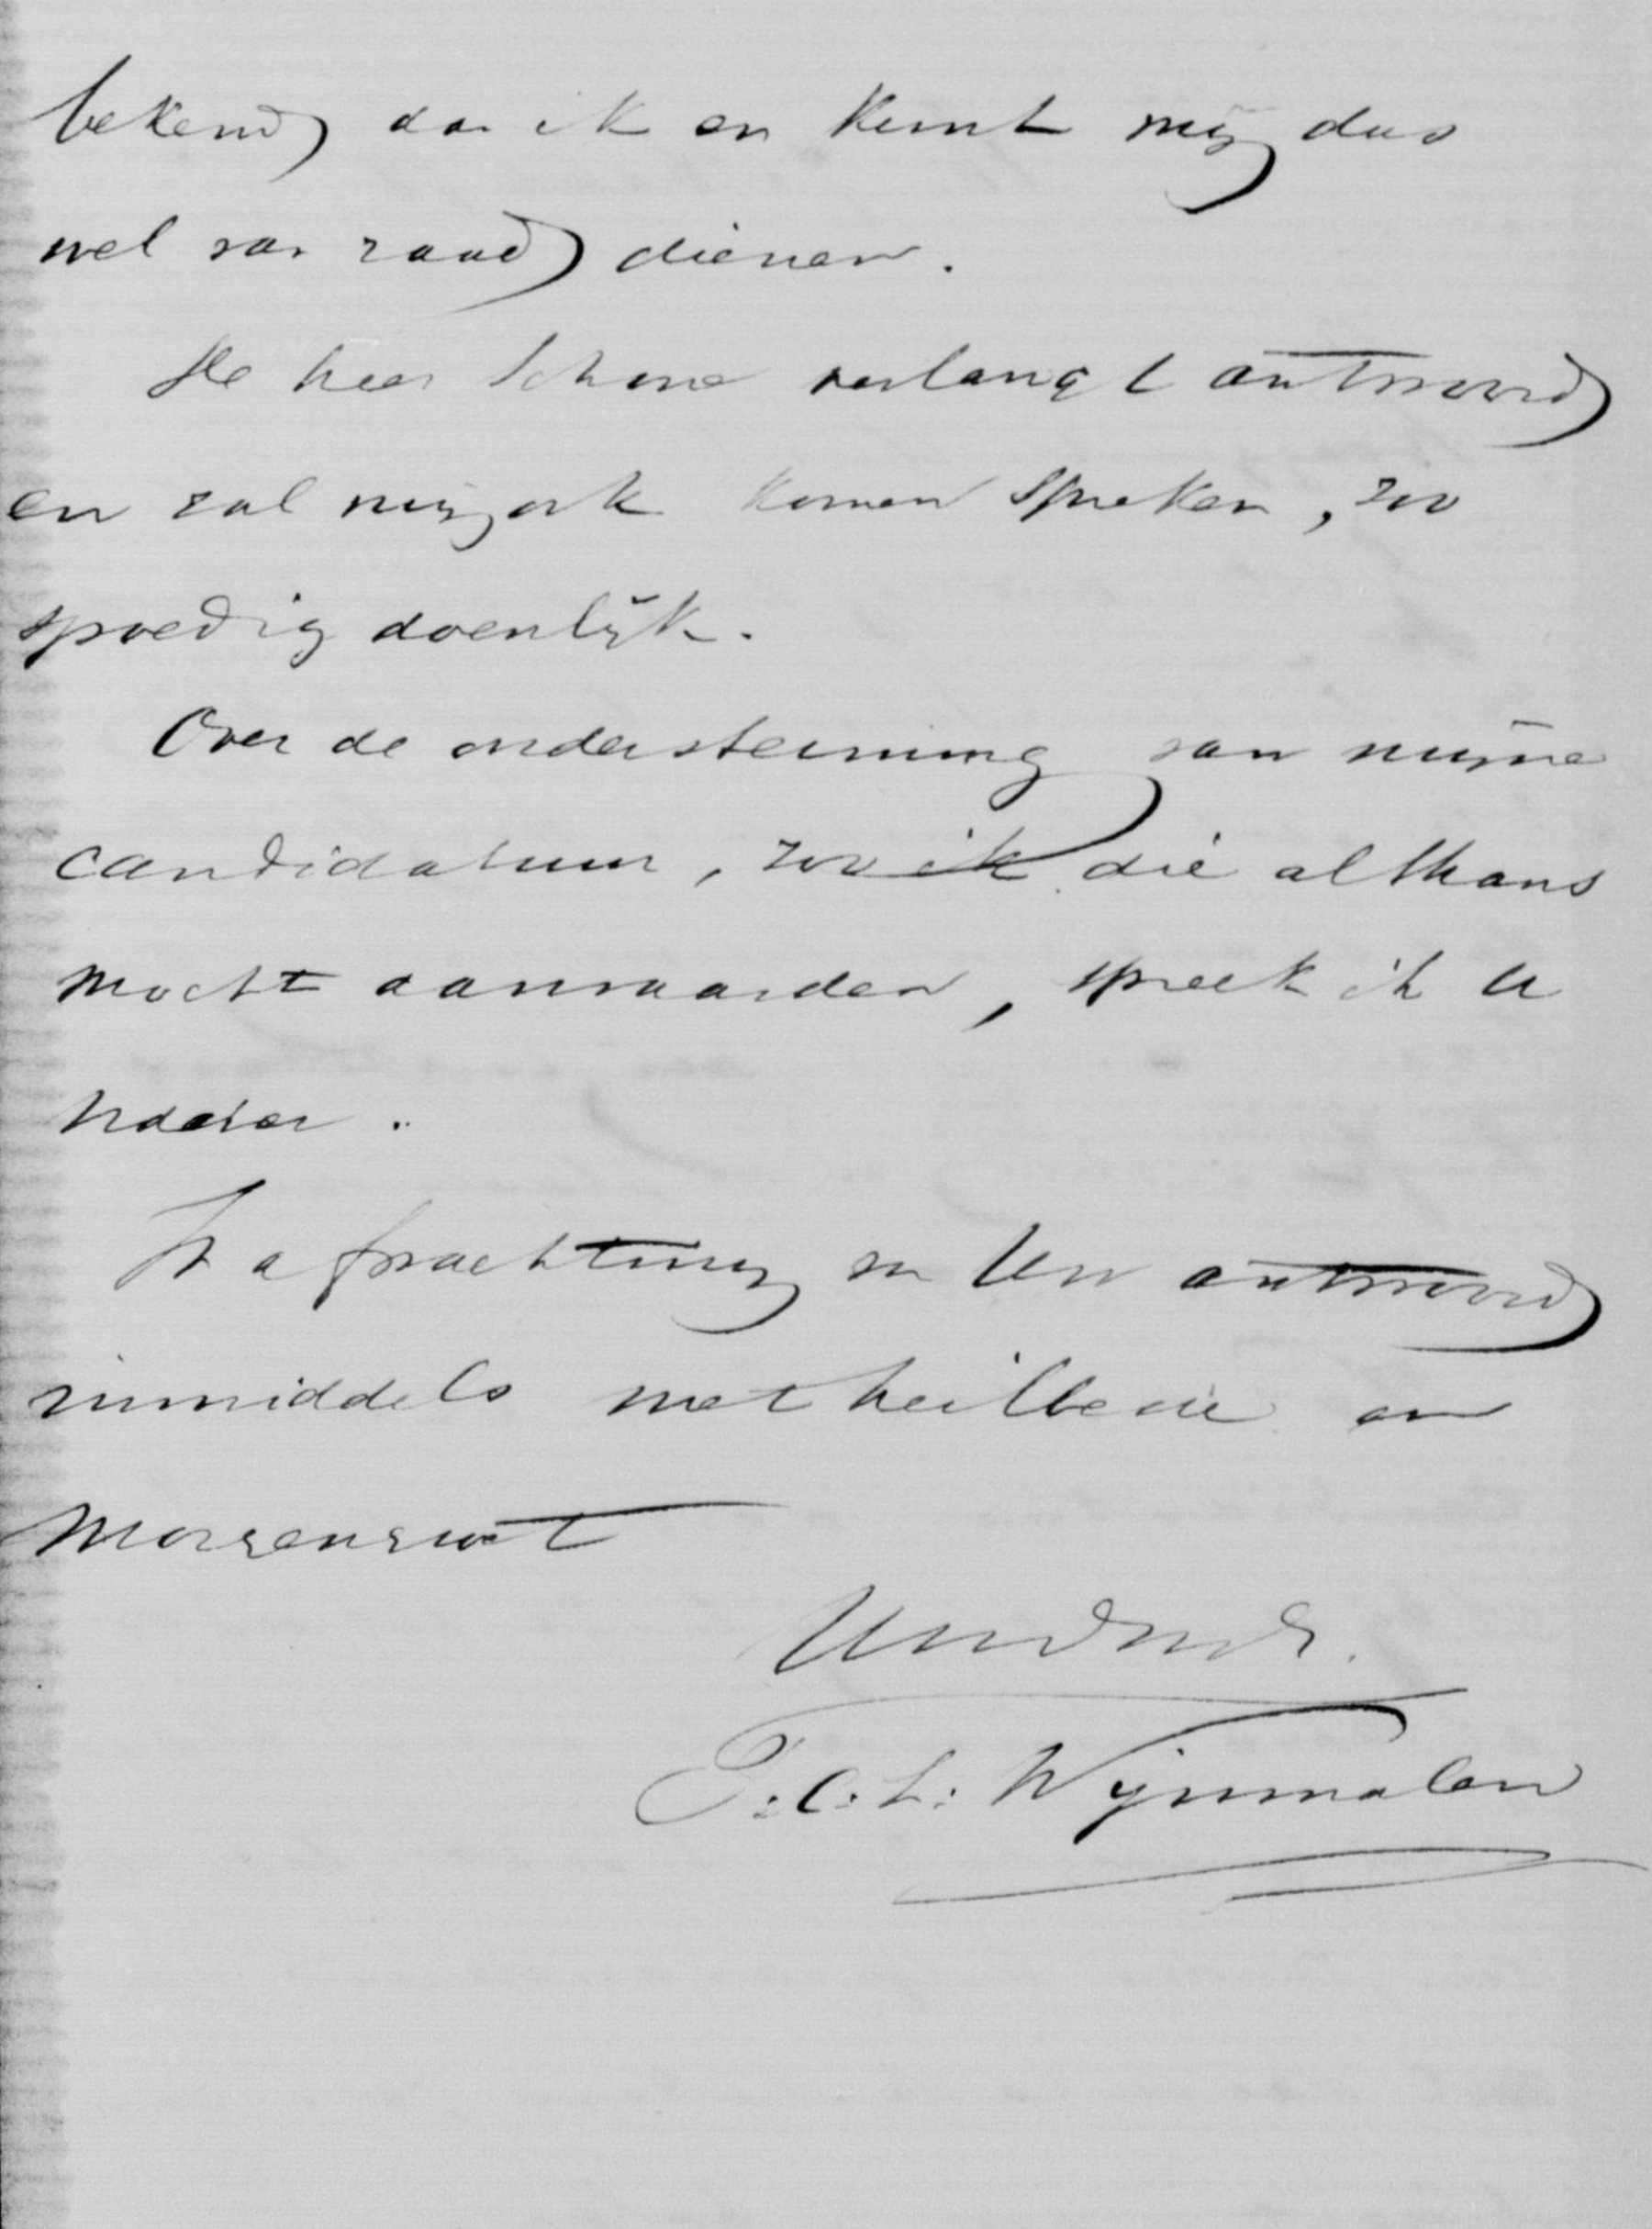 bekend dan ik en kunt mij dus
wel van raad dienen.
De heer verlangt antwoord
en zal mij ook komen spreken, zoo
spoedig doenlijk.
Over de ondersteuning van mijne
candidatuur, zoo ik die althans
mocht aanvaarden, spreek ik u
nader.
In afwachting van Uw antwoord
inmiddels met heilbede en
Morgengroet
T. C. L. Wijnmalen